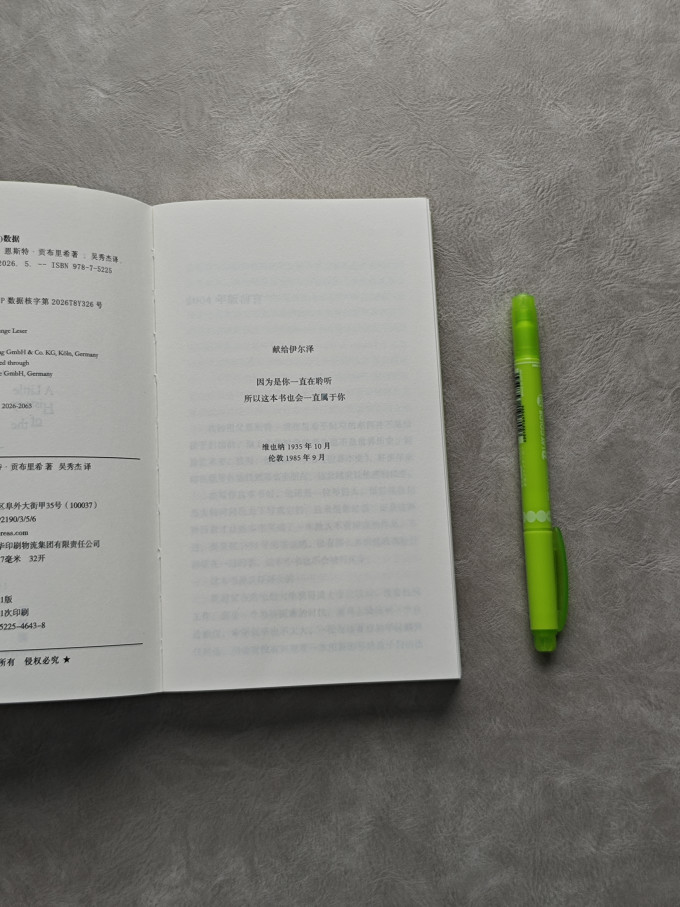 )数据
恩斯特·贡布里希著 ; 吴秀杰译.
2026. 5. -- ISBN 978-7-5225
P 数据核字第 2026T8Y326 号
nge Leser
ng GmbH & Co. KG, Köln, Germany
ed through
e GmbH, Germany
2026-2065
·贡布里希 著 吴秀杰 译
区阜外大街甲35号（100037）
2190/3/5/6
ress.com
华印刷物流集团有限责任公司
7毫米 32开
1版
1次印刷
5225-4643-8
所有 侵权必究 ★
献给伊尔泽
因为是你一直在聆听
所以这本书也会一直属于你
维也纳 1935 年 10 月
伦敦 1985 年 9 月